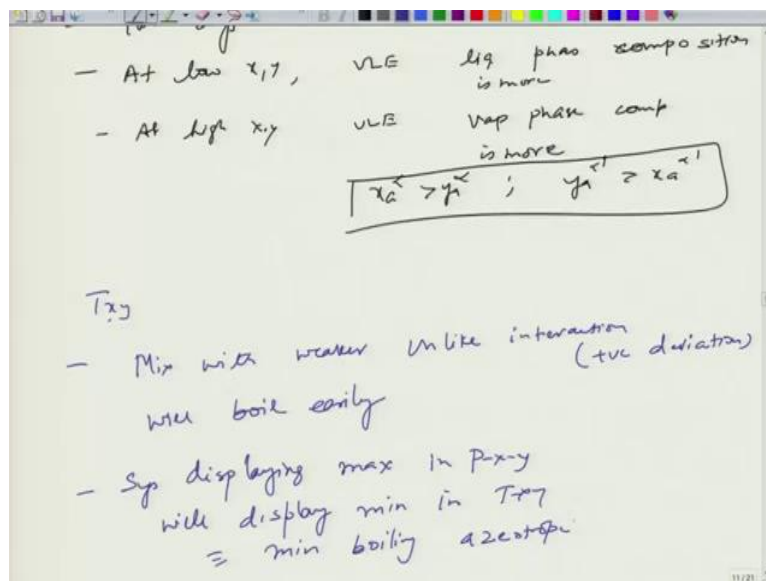 - At low x,y, VLE liq phas composition
is more
- At high x.y VLE vap phase comp
is more
xa^α > ya^α ; ya^α' > xa^α'
Txy
- Mix with weaker unlike interaction
(+ve deviation)
will boil easily
- Sys displaying max in P-x-y
will display min in Txy
= min boiling azeotrope
11/21